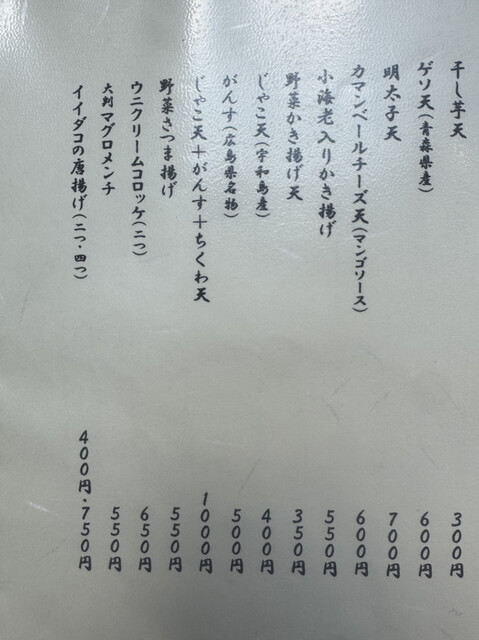 干し芋天 300円
ゲソ天(青森県産) 600円
明太子天 700円
カマンベールチーズ天(マンゴソース) 600円
小海老入りかき揚げ 550円
野菜かき揚げ天 350円
じゃこ天(宇和島産) 400円
がんす(広島県名物) 500円
じゃこ天+がんす+ちくわ天 1000円
野菜さつま揚げ 550円
ウニクリームコロッケ(二つ) 650円
大判マグロメンチ 550円
イイダコの唐揚げ(二つ・四つ) 400円・750円